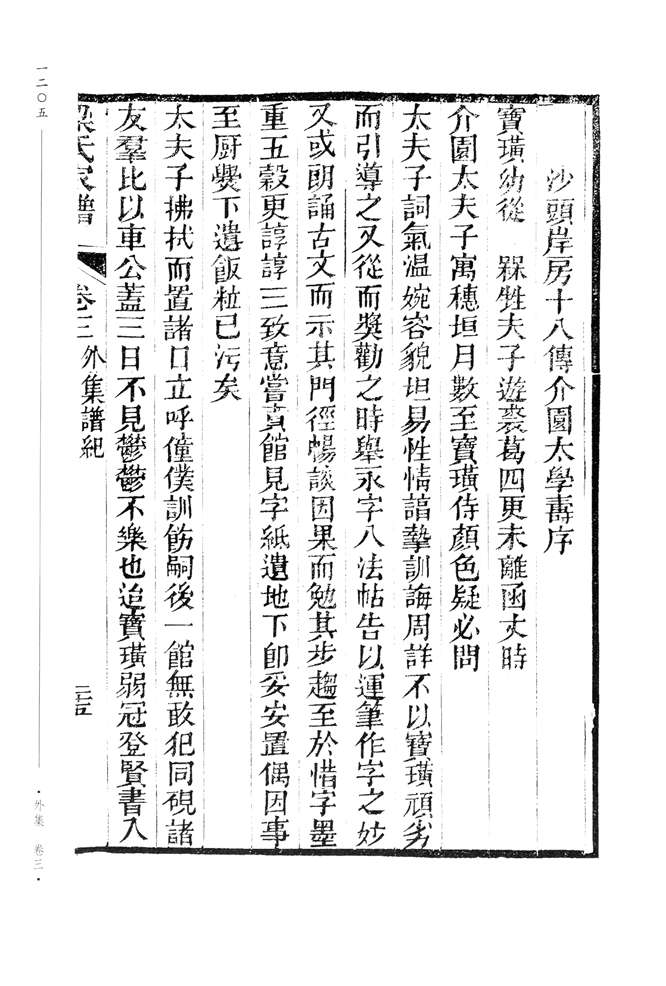 沙頭岸房十八傳介園太學壽序
寶璜幼從　槑甡夫子遊裘葛四更未離函丈時
介園太夫子寓穗垣月數至寶璜侍顏色疑必問
太夫子詞氣溫婉容貌坦易性情諳摯訓誨周詳不以寶璜頑劣
而引導之又從而奬勸之時舉永字八法帖告以運筆作字之妙
又或朗誦古文而示其門徑暢談因果而勉其步趨至於惜字墨
重五穀更諄諄三致意嘗賁館見字紙遺地下卽妥安置偶因事
至厨爨下遺飯粒已污矣
太夫子拂拭而置諸口立呼僮僕訓飭嗣後一館無敢犯同硯諸
友羣比以車公蓋三日不見鬱鬱不樂也迨寶璜弱冠登賢書入
梁氏家譜 卷三 外集譜紀 二五
一二〇五
·外集 卷三·